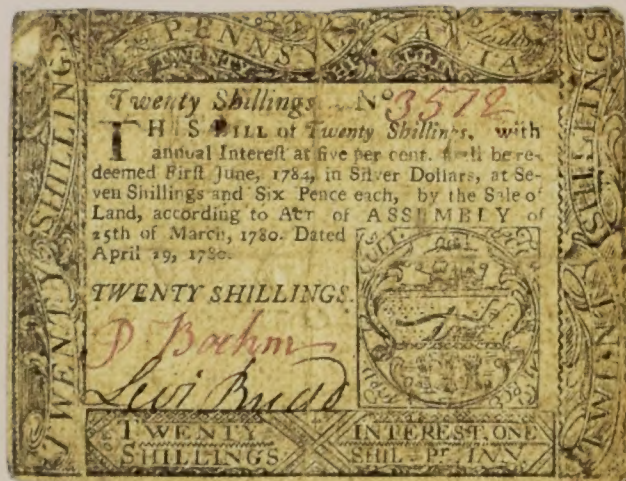 PENNSYLVANIA
TWENTY SHILLINGS
TWENTY SHILLINGS
Twenty Shillings No 3572
THIS BILL of Twenty Shillings, with
annual Interest at five per cent. shall be re-
deemed First June, 1784, in Silver Dollars, at Se-
ven Shillings and Six Pence each, by the Sale of
Land, according to ACT of ASSEMBLY of
25th of March, 1780. Dated
April 29, 1780.
TWENTY SHILLINGS.
D Boehm
Levi Budd
TWENTY SHILLINGS
TWENTY
SHILLINGS
INTEREST ONE
SHIL. PR. ANN.